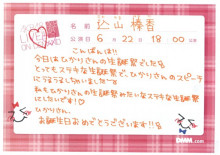 名前 込山榛香
公演日 6月22日 18:00公演
こんばんは!!
今日はひかりさんの生誕祭でした🎂
とってもステキな生誕祭で、ひかりさんのスピーチに
うるうるしちゃいました
私もひかりさんの生誕祭みたいなステキな生誕祭に
したいです!!
ひかりさん
お誕生日おめでとうございます!!
DMM.com